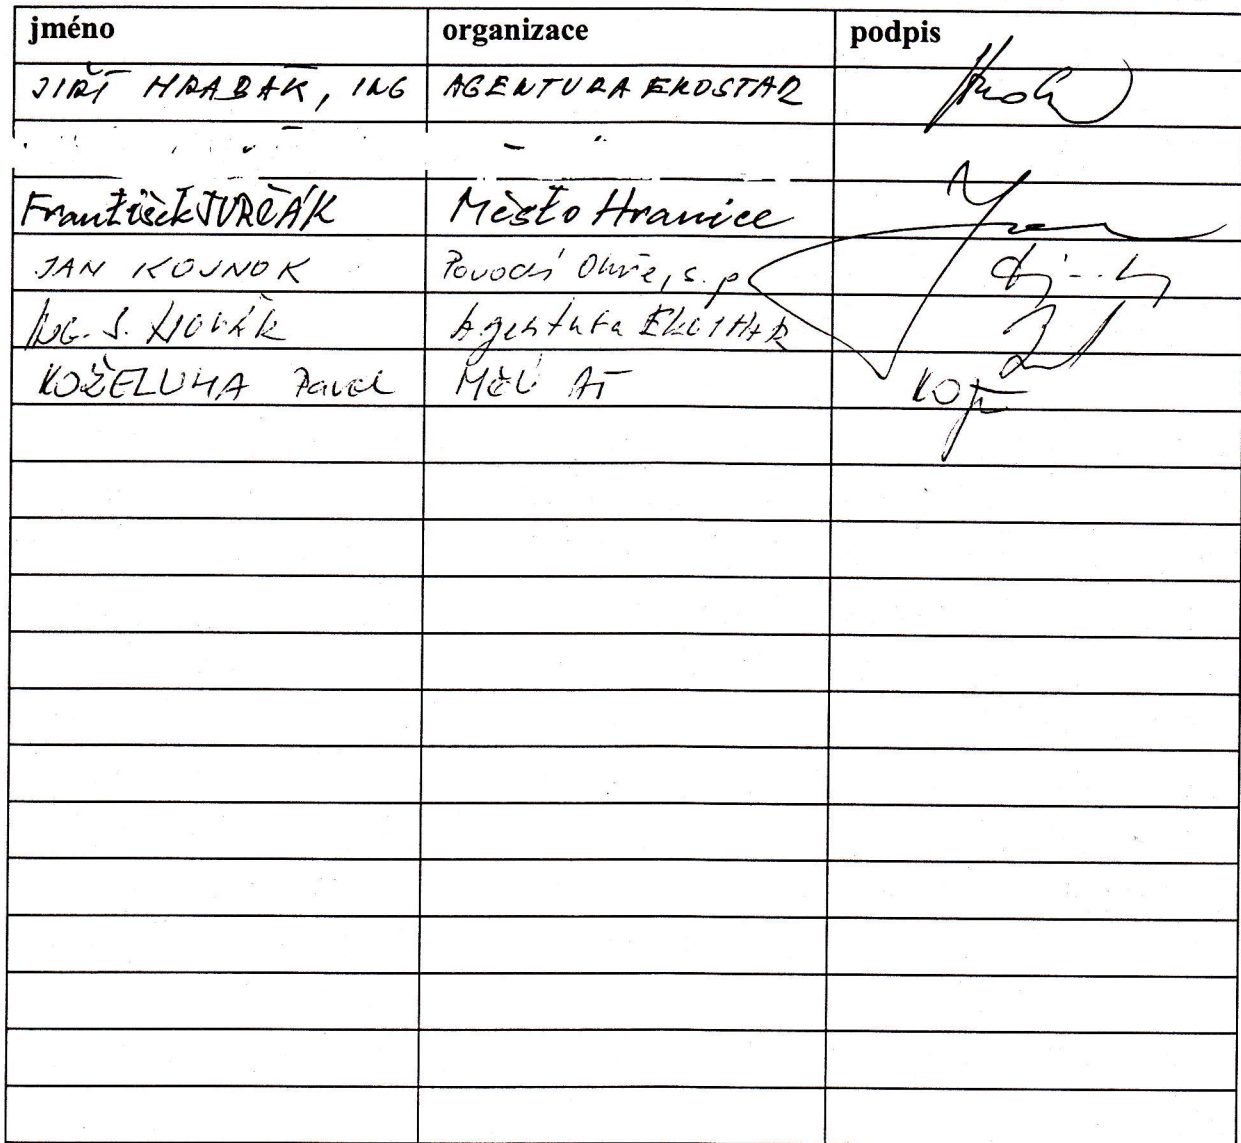 jméno organizace podpis
JIŘÍ HRABÁK, ING AGENTURA EKOSTAR
František JURČÁK Město Hranice
JAN KOJNOK Povodí Ohře, s. p.
ING. J. NOVÁK Agentura EKOSTAR
KOŽELUHA Pavel MěÚ AŠ